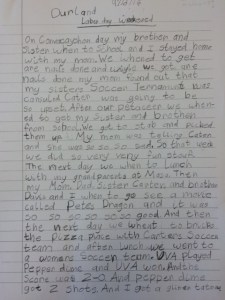 Our Land
Labor day Weekend
On Convocation day my brother and
Sisten when to School and I stayed home
with my mom. We whent to get
our nails done and whyle we get are
nails done my mom found out that
my sisters Soccer Tennamint was
canuled Cater was going to be
so upset. After our Potascer we when
to got my Sister and brother
from school. We got so stuf and picked
them up. My mom was telling Carter
and she was so so so sad. So that week
we did so very very fun stouf.
The next day we when to Lunch
with my grandparents at Maxs. Then
my Mom, Dad, Sister Carter, and brother
Davis and I when to go see a movie
called Petes Dragon and it was
so so so so so so good. And then
the next day we wheat to
the Pizza place with Carters Soccer
team and after lunch we went to
a womans soccen team. UVA Played
Pepper dine and UVA won. And the
Score was 2-0. And pepper dine
got 2 shots. And I got a